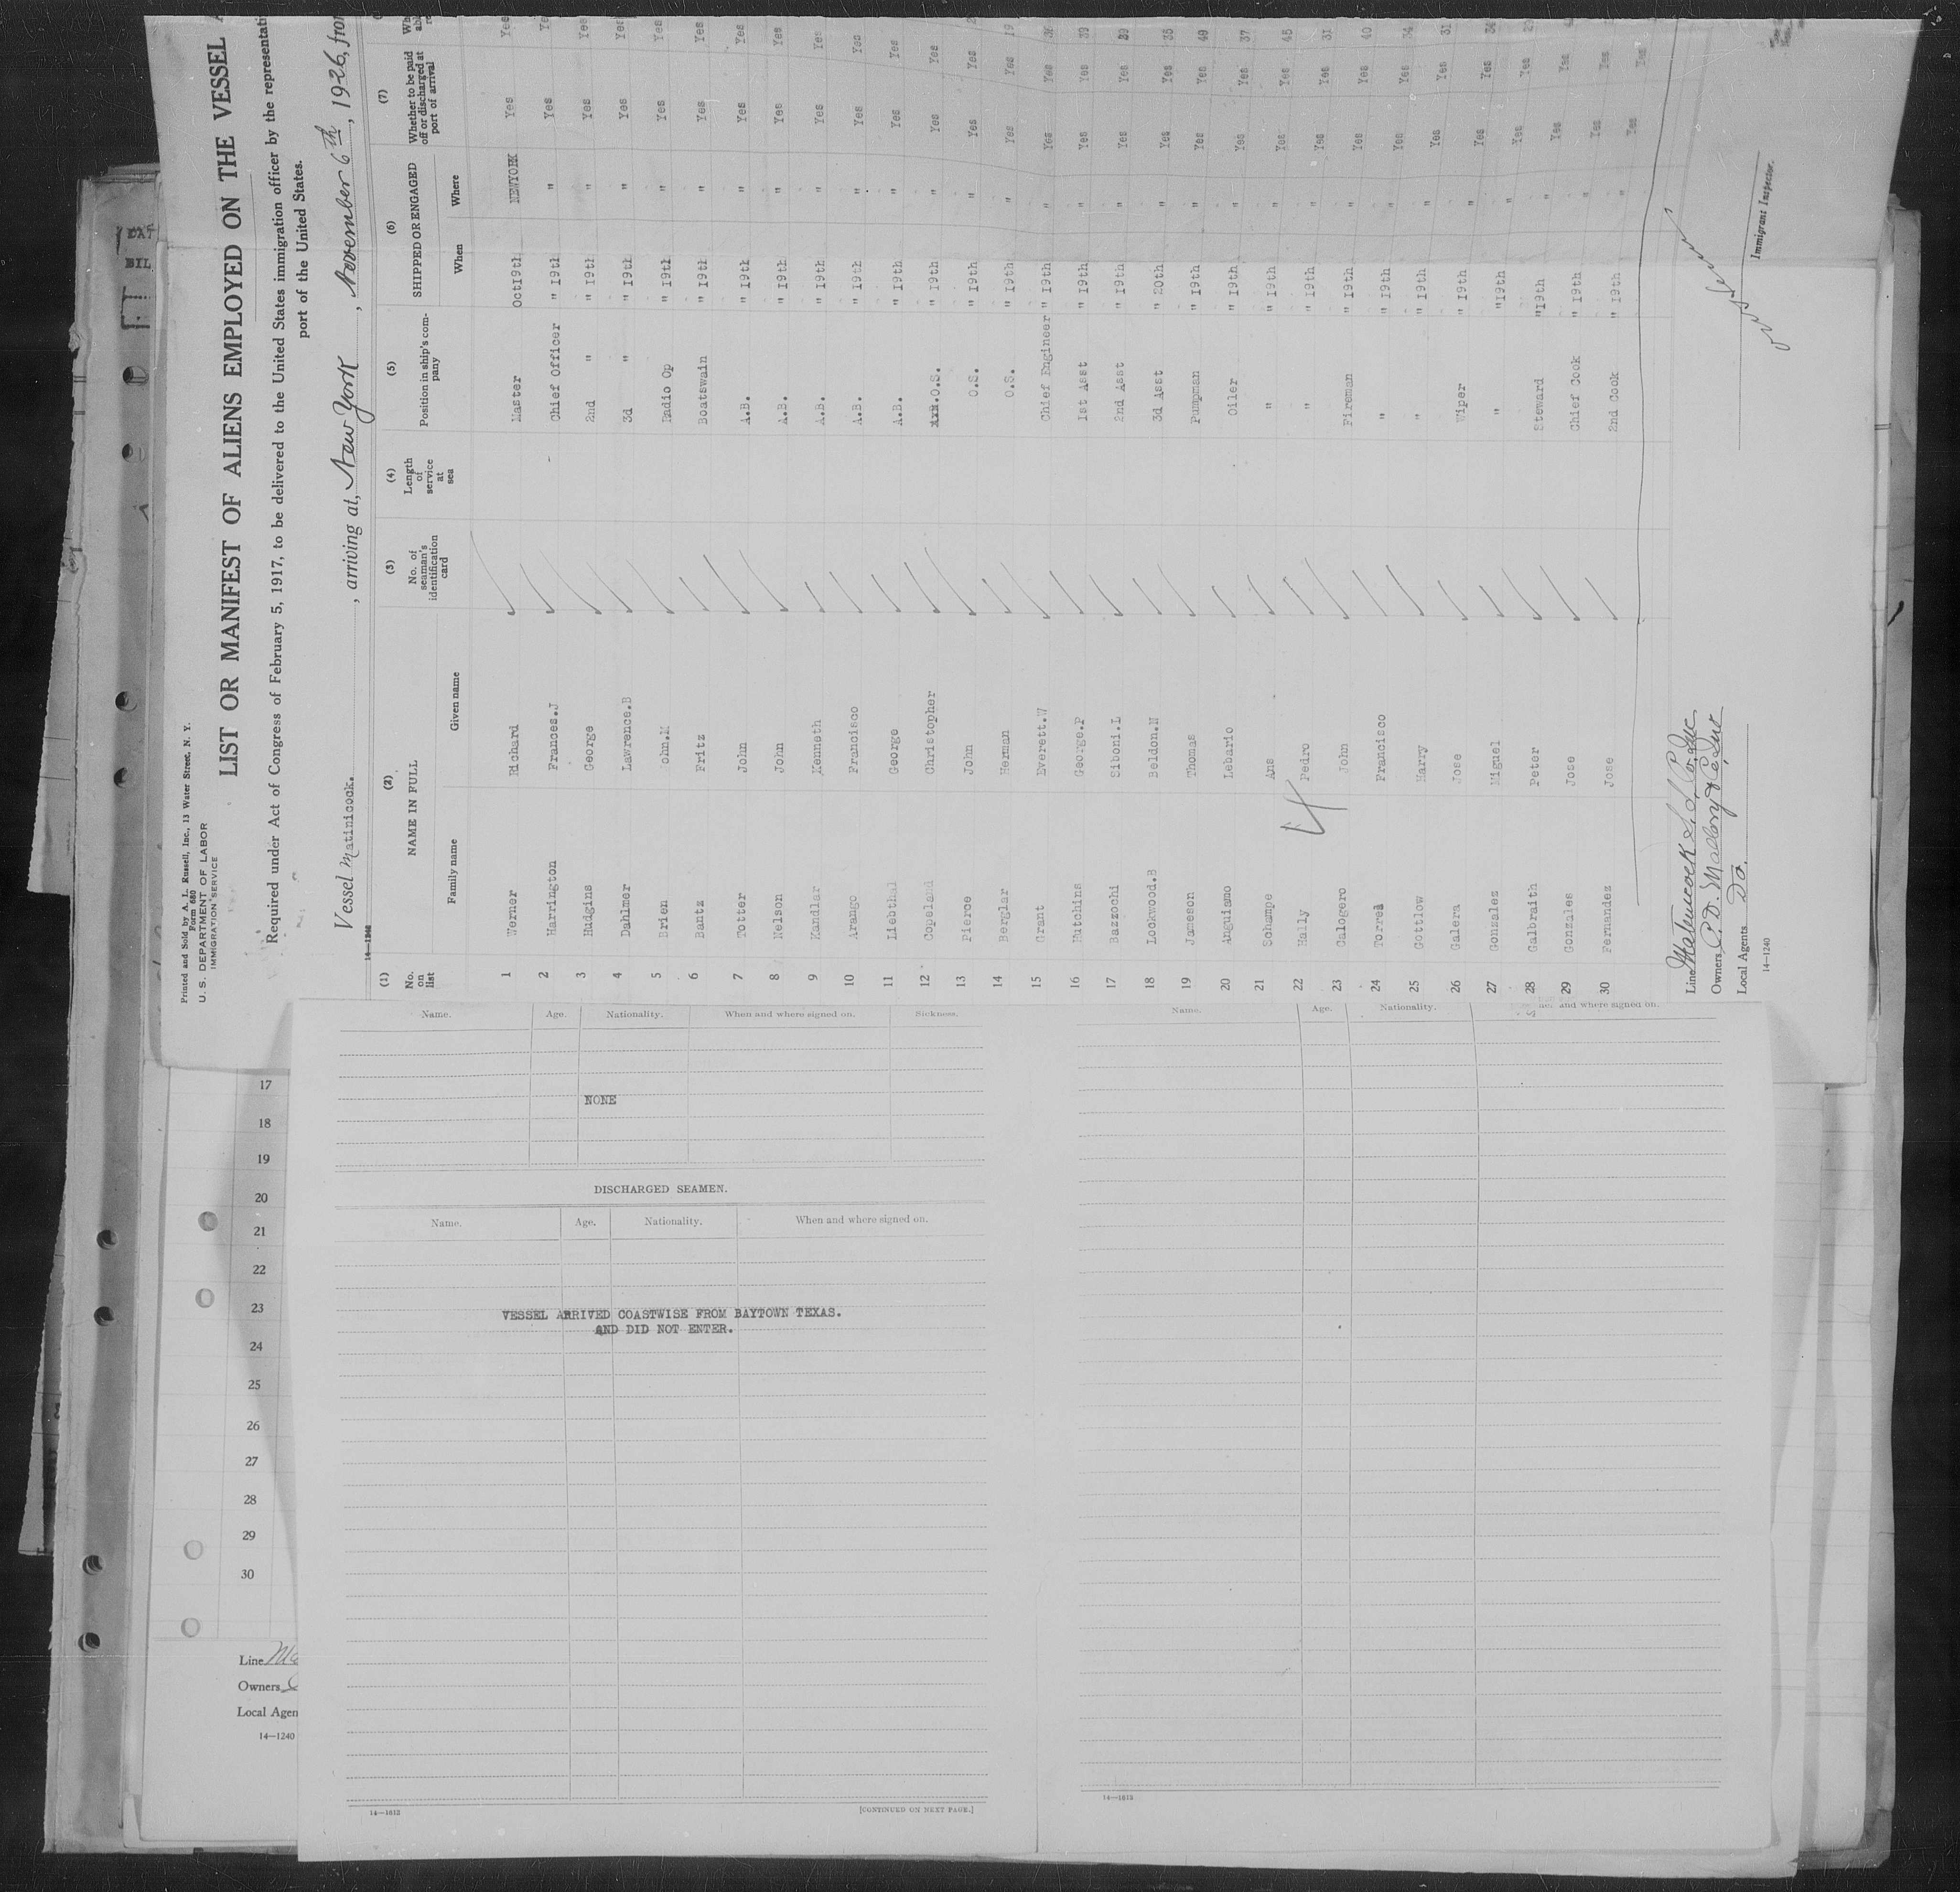 Printed and Sold by A. L. Russell, Inc., 13 Water Street, N. Y.
Form 680
U. S. DEPARTMENT OF LABOR
IMMIGRATION SERVICE
LIST OR MANIFEST OF ALIENS EMPLOYED ON THE VESSEL
Required under Act of Congress of February 5, 1917, to be delivered to the United States immigration officer by the representati
port of the United States.
Vessel Matinicock. , arriving at, New York , November 6th, 1926, from
(1) (2) (3) (4) (5) (6) (7)
No. on list NAME IN FULL Family name Given name No. of seaman's identification card Length of service at sea Position in ship's company SHIPPED OR ENGAGED When Where Whether to be paid off or discharged at port of arrival
1 Werner Richard Master Oct 19th NEWYORK Yes Yes
2 Harrington Frances.J Chief Officer " 19th " Yes Yes
3 Hudgins George 2nd " " 19th " Yes Yes
4 Dahlmer Lawrence.B 3d " " 19th " Yes Yes
5 Brien John.M Radio Op " 19th " Yes Yes
6 Bantz Fritz Boatswain " 19th " Yes Yes
7 Totter John A.B. " 19th " Yes Yes
8 Nelson John A.B. " 19th " Yes Yes
9 Kandlar Kenneth A.B. " 19th " Yes Yes
10 Arango Francisco A.B. " 19th " Yes Yes
11 Liebthal George A.B. " 19th " Yes Yes
12 Copeland Christopher O.S. " 19th " Yes Yes
13 Pierce John O.S. " 19th " Yes Yes
14 Berglar Herman O.S. " 19th " Yes Yes 19
15 Grant Everett.W Chief Engineer " 19th " Yes Yes
16 Hutchins George.P 1st Asst " 19th " Yes Yes 39
17 Bazzochi Siboni.L 2nd Asst " 19th " Yes Yes 29
18 Lockwood.B Beldon.N 3d Asst " 20th " Yes Yes 35
19 Jameson Thomas Pumpman " 19th " Yes Yes
20 Anguiamo Lebario Oiler " 19th " Yes Yes 37
21 Schampe Ans " " 19th " Yes Yes 45
22 Hally Pedro " " 19th " Yes Yes 31
23 Calogero John Fireman " 19th " Yes Yes 40
24 Torrea Francisco " " 19th " Yes Yes 34
25 Gottlow Harry " " 19th " Yes Yes 31
26 Galera Jose Wiper " 19th " Yes Yes
27 Gonzalez Miguel " " 19th " Yes Yes
28 Galbraith Peter Steward " 19th " Yes Yes
29 Gonzales Jose Chief Cook " 19th " Yes Yes
30 Fernandez Jose 2nd Cook " 19th " Yes Yes
Line Matinicock S. S. Co. Inc
Owners C. D. Mallory & Co. Inc
Local Agents Do.
14—1240
Immigrant Inspector.
Name. Age. Nationality. When and where signed on. Sickness.
NONE
DISCHARGED SEAMEN.
Name. Age. Nationality. When and where signed on.
VESSEL ARRIVED COASTWISE FROM BAYTOWN TEXAS.
AND DID NOT ENTER.
14—1613
[CONTINUED ON NEXT PAGE.]
Name. Age. Nationality. and where signed on.
14—1613
17
18
19
20
21
22
23
24
25
26
27
28
29
30
Line
Owners
Local Agen
14—1240